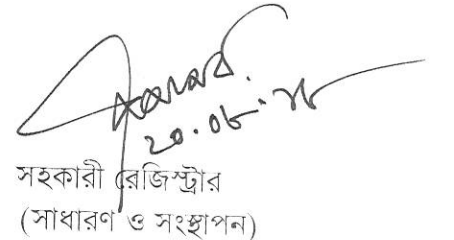 ২০.০৮.১৮
সহকারী রেজিস্ট্রার
(সাধারণ ও সংস্থাপন)